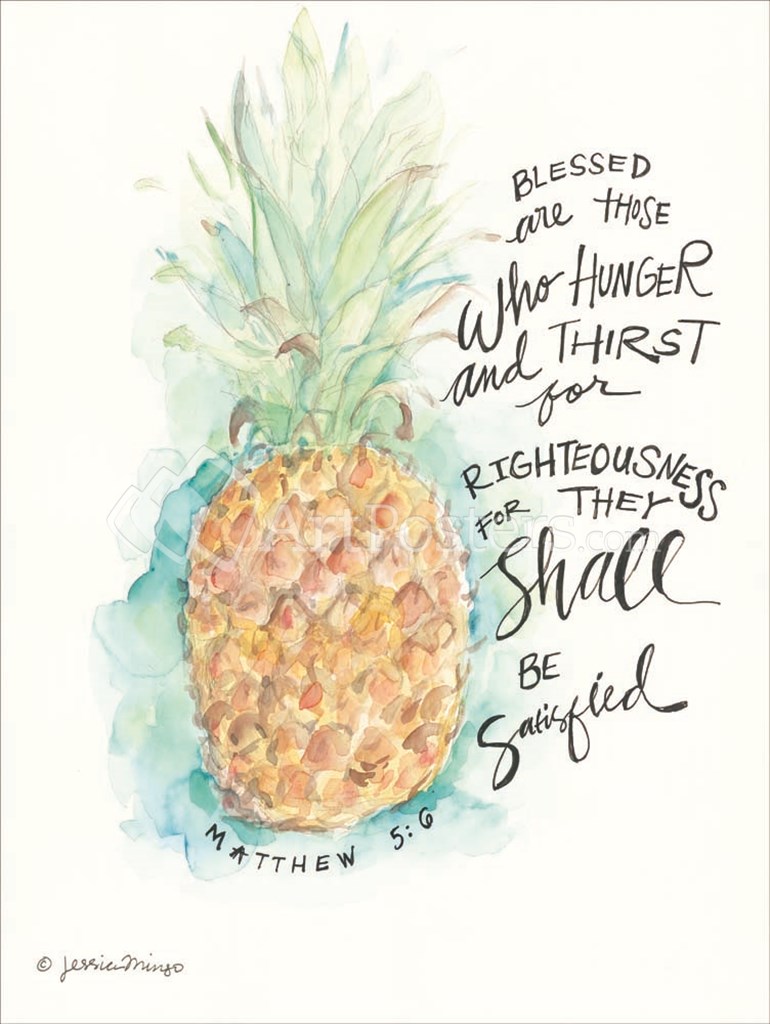 BLESSED
are THOSE
Who HUNGER
and THIRST
for
RIGHTEOUSNESS
FOR THEY
Shall
BE
Satisfied
MATTHEW 5:6
ArtPosters.com
© Jessica Mingo